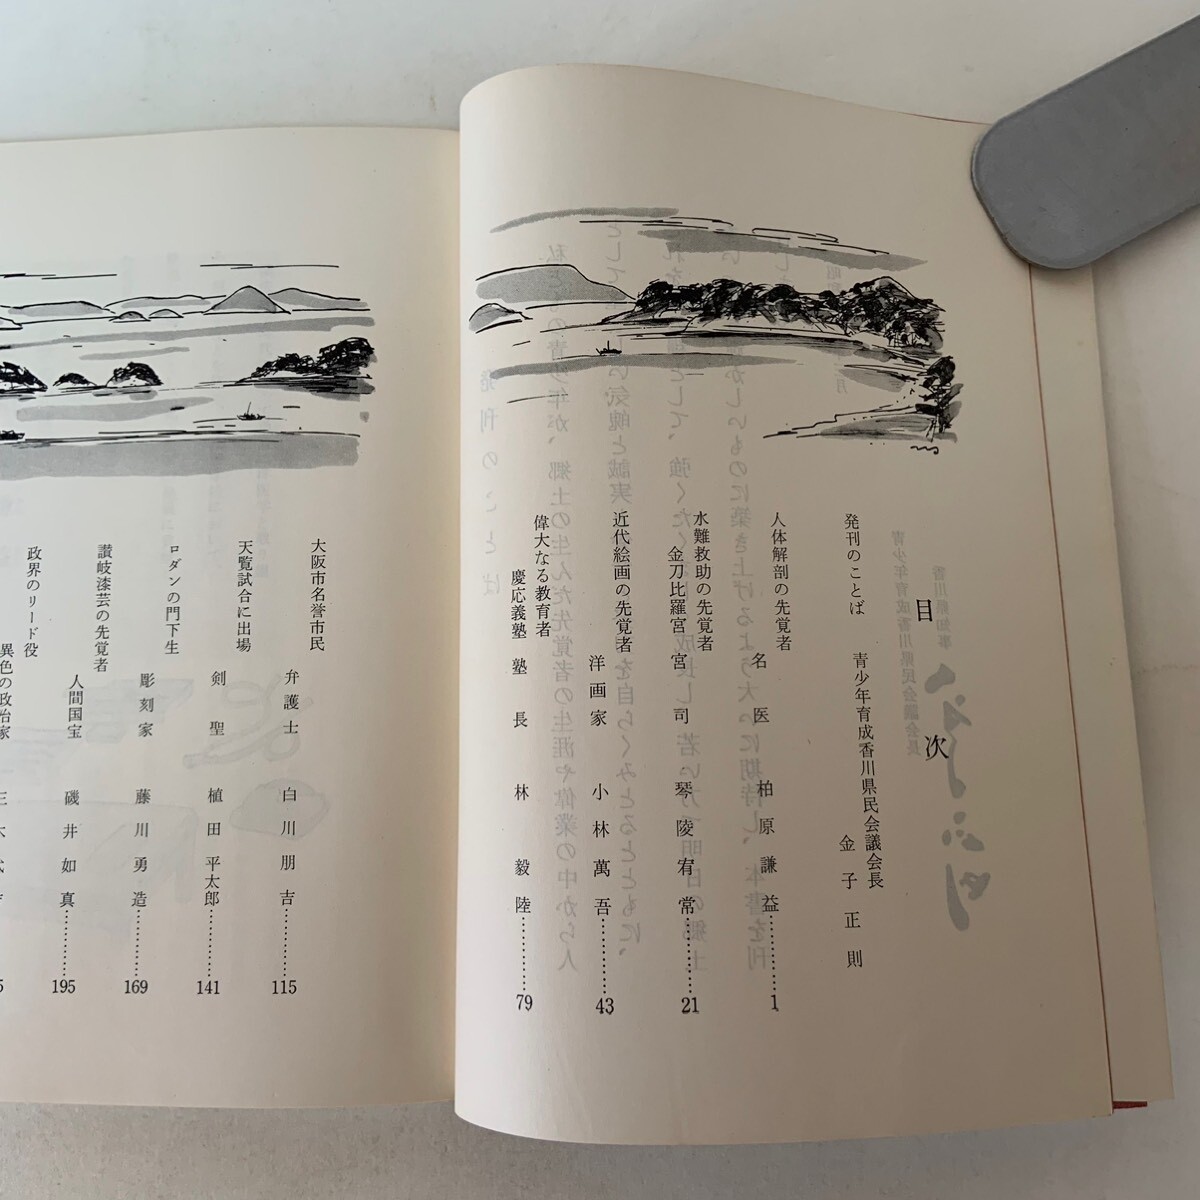 目次
発刊のことば
青少年育成香川県民会議会長
金子正則
人体解剖の先覚者
名医 柏原謙益…………1
水難救助の先覚者
金刀比羅宮宮司 琴陵宥常…………21
近代絵画の先覚者
洋画家 小林萬吾…………43
偉大なる教育者
慶応義塾塾長 林毅陸…………79
大阪市名誉市民
弁護士 白川朋吉…………115
天覧試合に出場
剣聖 植田平太郎…………141
ロダンの門下生
彫刻家 藤川勇造…………169
讃岐漆芸の先覚者
人間国宝 磯井如真…………195
政界のリード役
異色の政治家